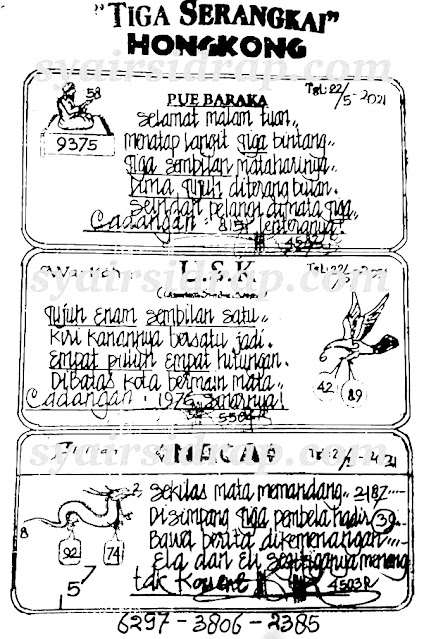 "TIGA SERANGKAI"
HONGKONG
syairsidrap.com
58
9375
PUE BARAKA
Tgl: 22/5-2021
Selamat malam tuan..
Menatap langit tiga bintang..
Tiga sembilan mataharinya.
Lima tujuh diterang bulan.
pelangi dimata tiga..
Cadangan
syairsidrap.com
U.S.K
Tujuh enam sembilan satu..
Kiri kanannya bersatu jadi.
Empat puluh empat hitungan.
Dibatas kota bermain mata..
Cadangan 1976
42
89
syairsidrap.com
NAGA
Sekilas mata memandang.. 2187
Disimpang tiga pembela hadir 39
Bawa berita dikemenangan
Ela dan Eli menang
tak
4503R
2
8
92
74
5
6297-3806-2385